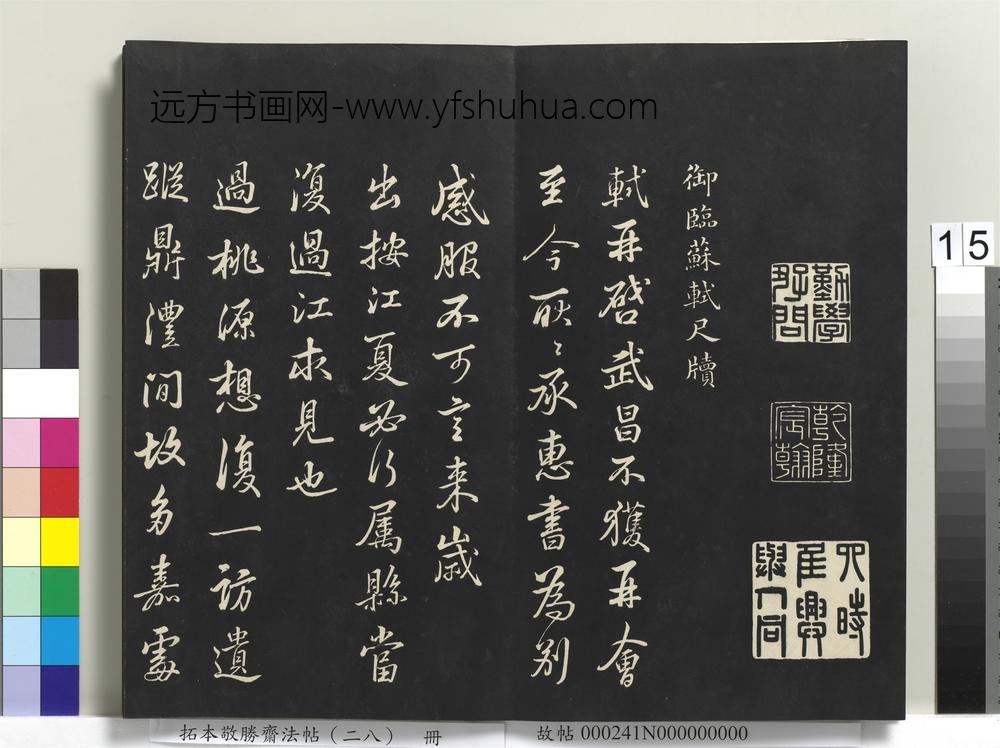 远方书画网-www.yfshuhua.com
御臨蘇軾尺牘
軾再啓武昌不獲再會
至今耿〻承惠書為別
感服不可言来歲
出按江夏必行属縣當
復過江求見也
過桃源想復一訪遺
蹤鼎澧间故多嘉處
勤學
好問
乾隆
宸翰
四時
佳興
與人同
15
拓本敬勝齋法帖（二八） 冊
故帖 000241N000000000